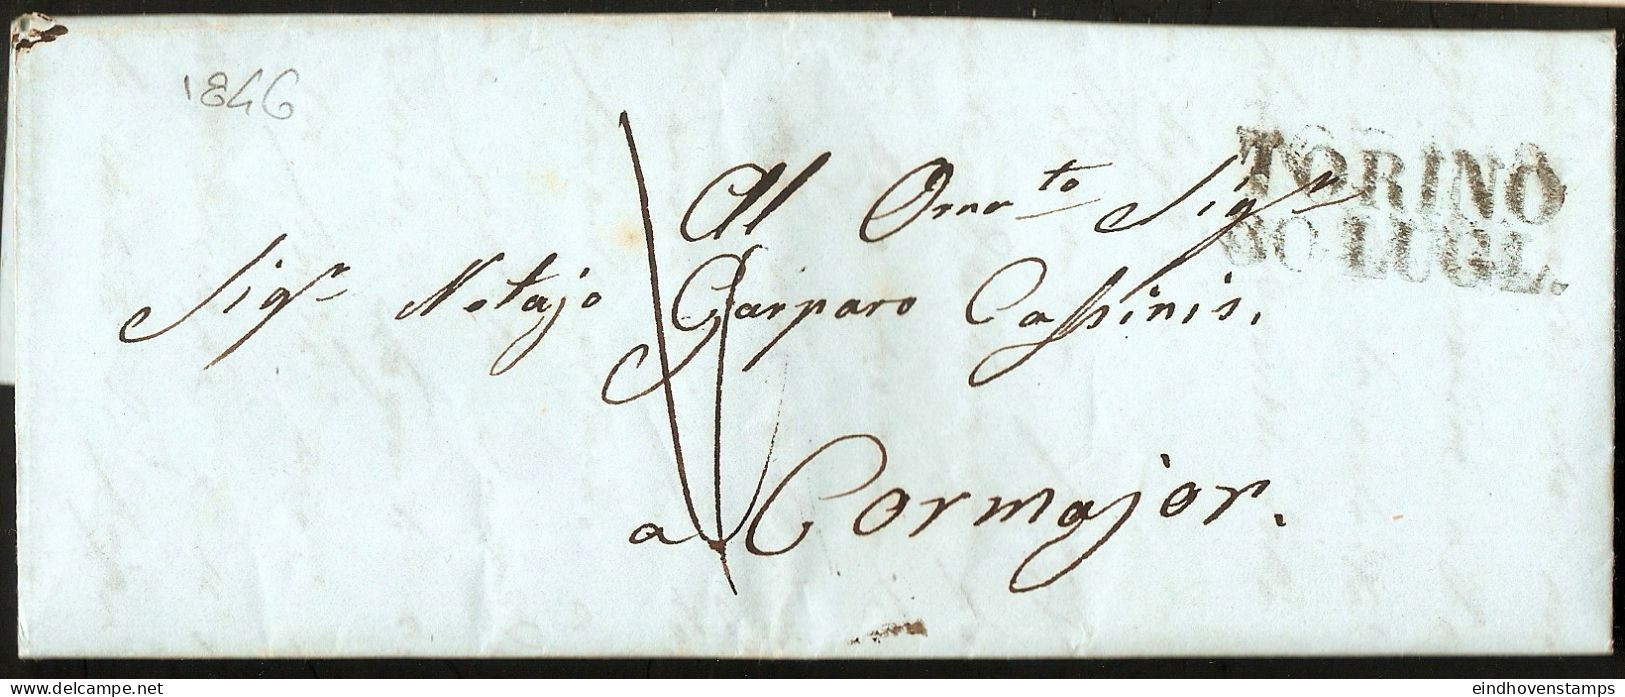 1846
TORINO
30 LUGL.
Al Orna.to Sigr
Sigr Notajo Gasparo Cassinis.
a Cormajor.
delcampe.net
eindhovenstamps